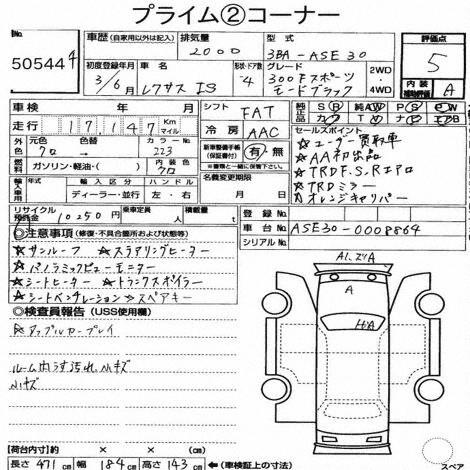 プライム②コーナー
50544
車歴 (自家用以外は記入)
排気量
2000
型式
3BA-ASE30
評価点
5
初度登録年月
3/6月
車名
レクサス IS
形状・ドア数
4
グレード
300Fスポーツ
モードブラック
2WD
4WD
内装
補助評価
A
車検 年 月
走行 17,147 Km マイル
シフト
FAT
冷房
AAC
純正品 SR AW PS PW
カワ TV ナビ エアB
外色
元色 クロ
色替
カラー№ 223
燃料 ガソリン・軽油・( )
内装色 クロ
新車整備手帳(保証書付)
有 無
セールスポイント
☆ユーザー買取車
☆AA初出品
☆TRD F.S.Rエアロ
☆TRDミラー
オレンジキャリパー
輸入車用
年式
輸入区分
ディーラー・並行
ハンドル
左・右
名義変更期限
月 日
リサイクル預託金
10250円
乗車定員 人
積載量 t
登録№
車台№ ASE30-0008864
シリアル№
◎注意事項 (修復・不具合箇所および状態)
☆サンルーフ ☆ステアリングヒーター
☆パノラミックビューモニター
☆シートヒーター ☆トランクスポイラー
☆シートベンチレーション スペアキー
◎検査員報告 (USS使用欄)
☆アップルカープレイ
ルーム内うす汚れ、小キズ
小キズ
A
スペア
(荷台内寸)約 × × (cm)
長さ 471cm 幅 184cm 高さ 143cm ←(車検証上の寸法)